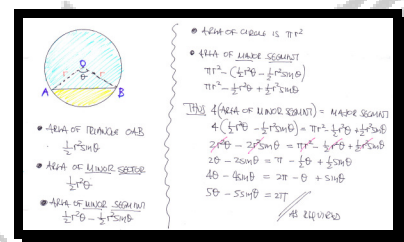 O
r
r
θ
A
B
• AREA OF TRIANGLE OAB
½r²sinθ
• AREA OF MINOR SECTOR
½r²θ
• AREA OF MINOR SEGMENT
½r²θ - ½r²sinθ
• AREA OF CIRCLE IS πr²
• AREA OF MAJOR SEGMENT
πr² - (½r²θ - ½r²sinθ)
πr² - ½r²θ + ½r²sinθ
THUS 4(AREA OF MINOR SEGMENT) = MAJOR SEGMENT
4(½r²θ - ½r²sinθ) = πr² - ½r²θ + ½r²sinθ
2r²θ - 2r²sinθ = πr² - ½r²θ + ½r²sinθ
2θ - 2sinθ = π - ½θ + ½sinθ
4θ - 4sinθ = 2π - θ + sinθ
5θ - 5sinθ = 2π
AS REQUIRED